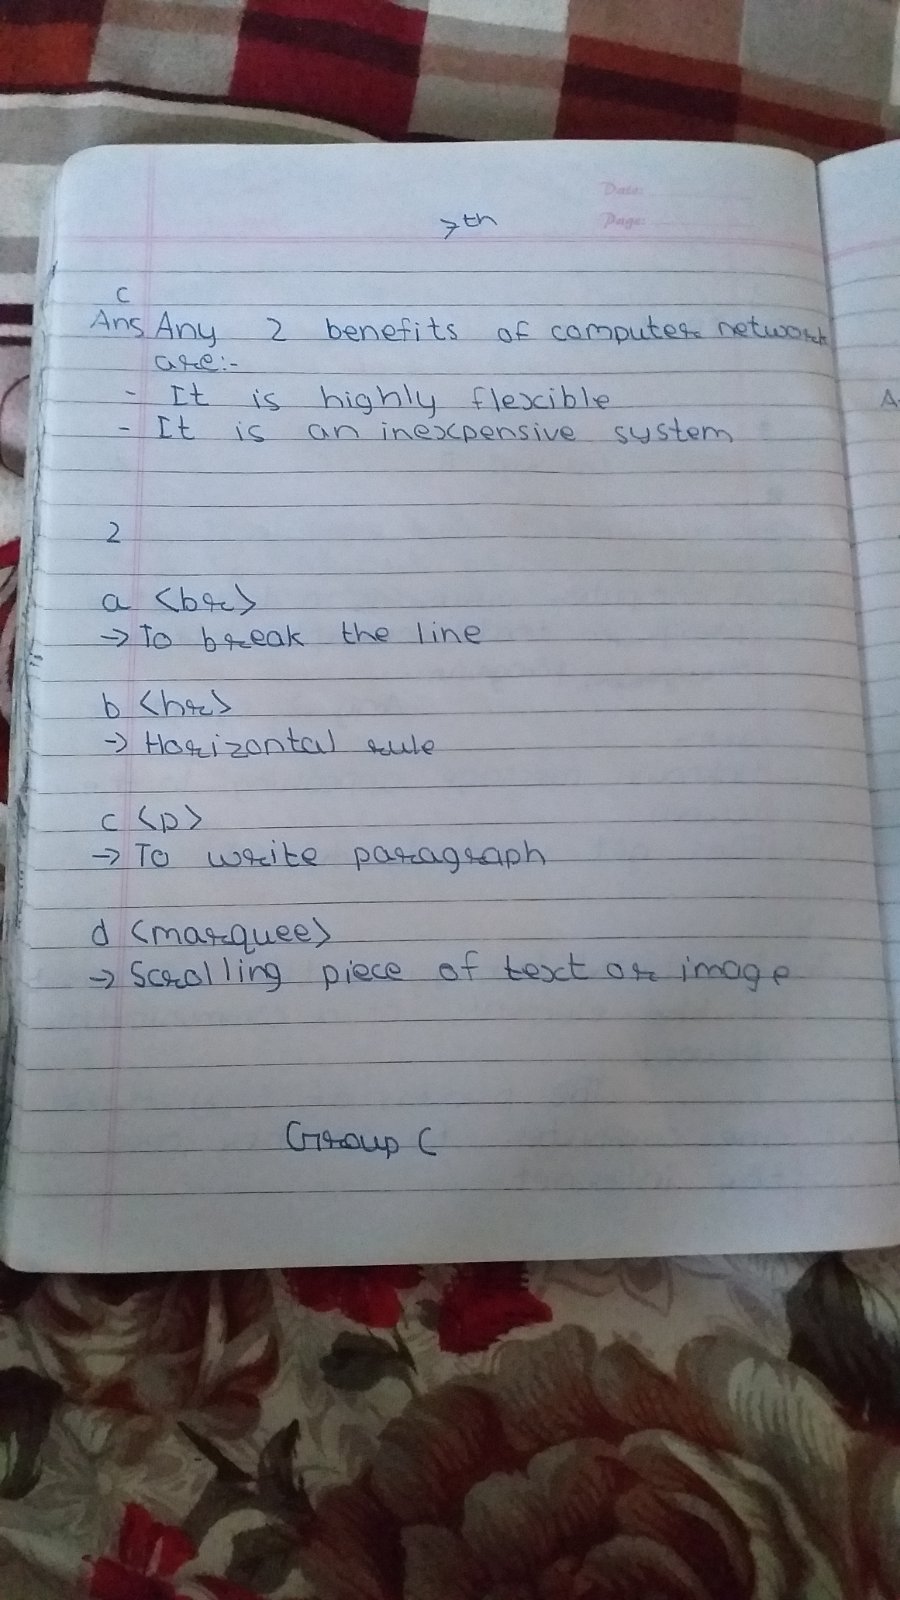 Date:
7th
Page:
c
Ans Any 2 benefits of computer network
are:-
- It is highly flexible
- It is an inexpensive system
2
a <br>
→ To break the line
b <hr>
→ Horizontal rule
c <p>
→ To write paragraph
d <marquee>
→ Scrolling piece of text or image
Group C
A